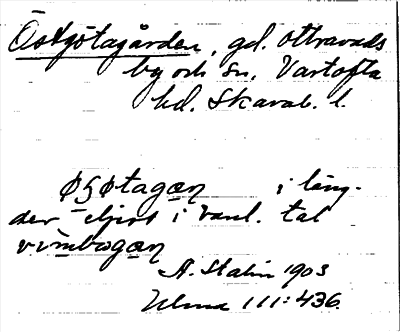 Östgötagården, gd. Ottravads
by och sn, Vartofta
hd. Skarab. l.
i läng-
der eljest i vanl. tal
vimbogæn
A. Stalin 1903
Ulma 111:436.